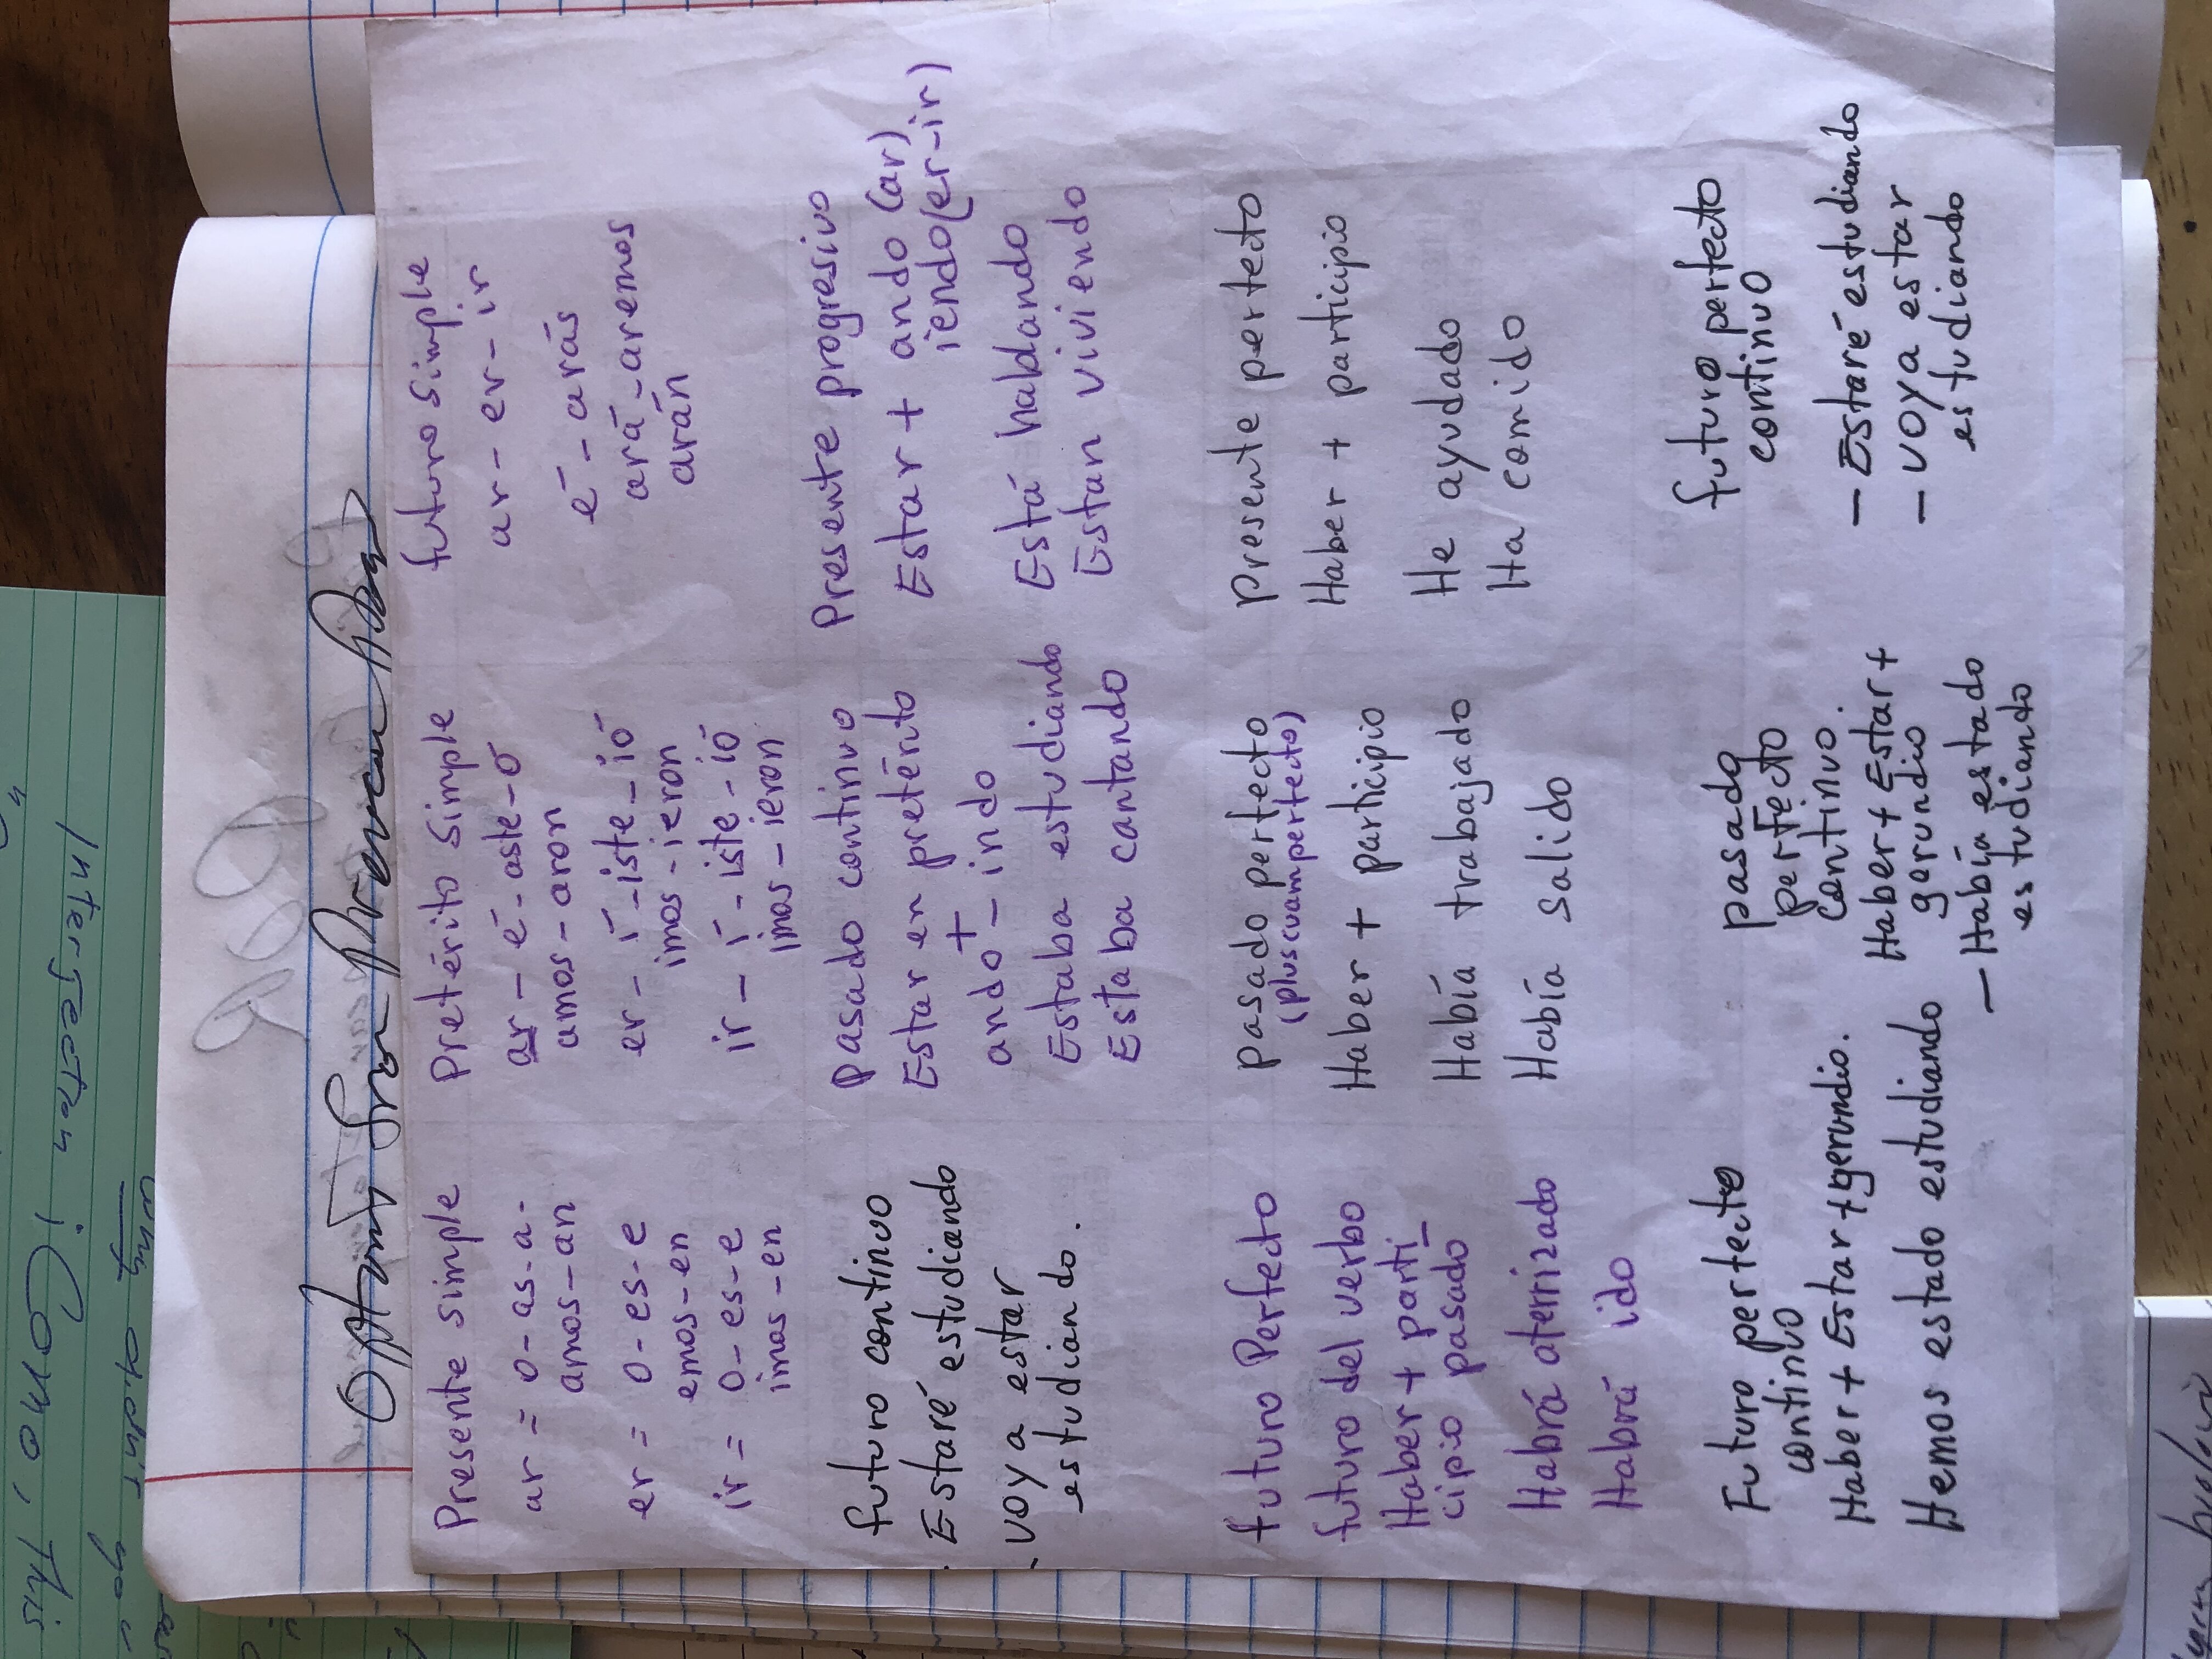 Presente simple
ar = o-as-a-
amos-an
er = o-es-e
emos-en
ir = o-es-e
imos-en
Pretérito simple
ar - é-aste-ó
amos-aron
er - í-iste-ió
imos-ieron
ir - í-iste-ió
imos-ieron
futuro simple
ar-er-ir
é-arás
ará-aremos
arán
futuro continuo
. Estaré estudiando
- voy a estar
estudiando.
Pasado continuo
Estar en pretérito
+
ando - indo
Estaba estudiando
Estaba cantando
Presente progresivo
Estar + ando (ar)
iendo (er-ir)
Está habdando
Estan viviendo
futuro Perfecto
futuro del verbo
Haber + parti-
cipio pasado
Habrá aterrizado
Habrá ido
pasado perfecto
(pluscuamperfecto)
Haber + participio
Había trabajado
Había salido
Presente perfecto
Haber + participio
He ayudado
Ha comido
Futuro perfecto
continuo
Haber + Estar + gerundio.
Hemos estado estudiando
pasado
perfecto
continuo
Haber + Estar +
gerundio
- Había estado
estudiando
futuro perfecto
continuo
- Estaré estudiando
- voy a estar
estudiando
Interjectan
¡Como, this
why didn't